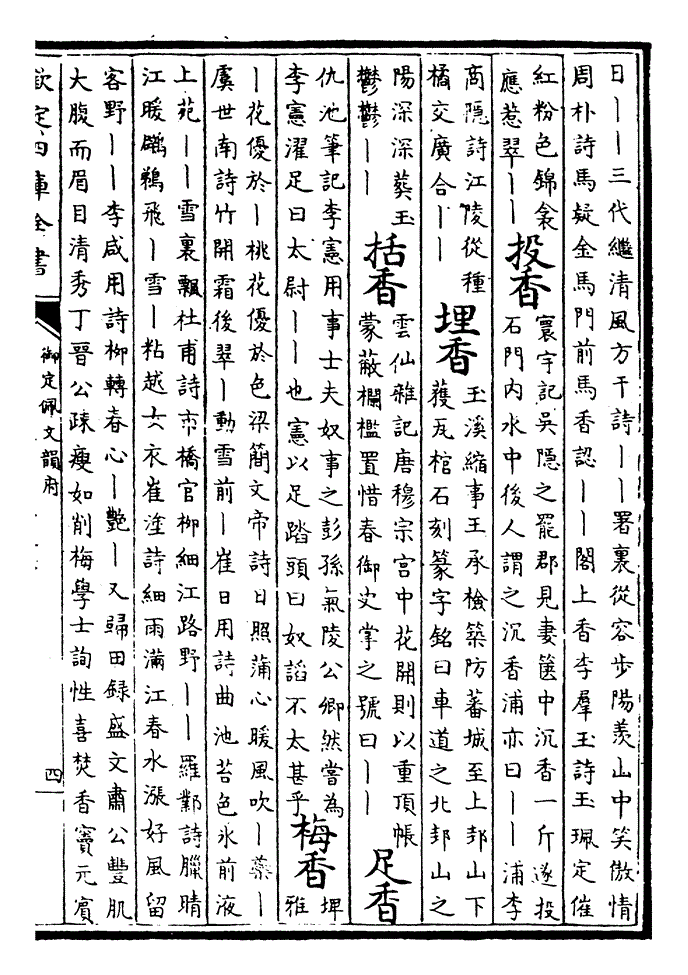 日丨丨三代繼清風方干詩丨丨署裏從容步陽羡山中笑傲情
周朴詩馬疑金馬門前馬香認丨丨閣上香李羣玉詩玉珮定催
紅粉色錦衾應惹翠丨丨
投香
寰宇記吳隱之罷郡見妻篋中沉香一斤遂投
石門内水中後人謂之沉香浦亦曰丨丨浦李
商隱詩江陵從種橘交廣合丨丨
埋香
玉溪編事王承檢築防蕃城至上邽山下
獲瓦棺石刻篆字銘曰車道之北邽山之
陽深深葬玉鬱鬱丨丨
括香
雲仙雜記唐穆宗宫中花開則以重頂帳
蒙蔽欄檻置惜春御史掌之號曰丨丨
足香
仇池筆記李憲用事士夫奴事之彭孫氣陵公卿然嘗為
李憲濯足曰太尉丨丨也憲以足踏頭曰奴諂不太甚乎
梅香
埤雅
丨花優於丨桃花優於色梁簡文帝詩日照蒲心暖風吹丨蘂丨
虞世南詩竹開霜後翠丨動雪前丨崔日用詩曲池苔色氷前液
上苑丨丨雪裏飄杜甫詩市橋官柳細江路野丨丨羅鄴詩臘晴
江暖鸊鵜飛丨雪丨粘越女衣崔塗詩細雨滿江春水漲好風留
客野丨丨李咸用詩柳轉春心丨艷丨又歸田録盛文肅公豐肌
大腹而眉目清秀丁晉公疎瘦如削梅學士詢性喜焚香竇元賓
欽定四庫全書
御定佩文韻府
四